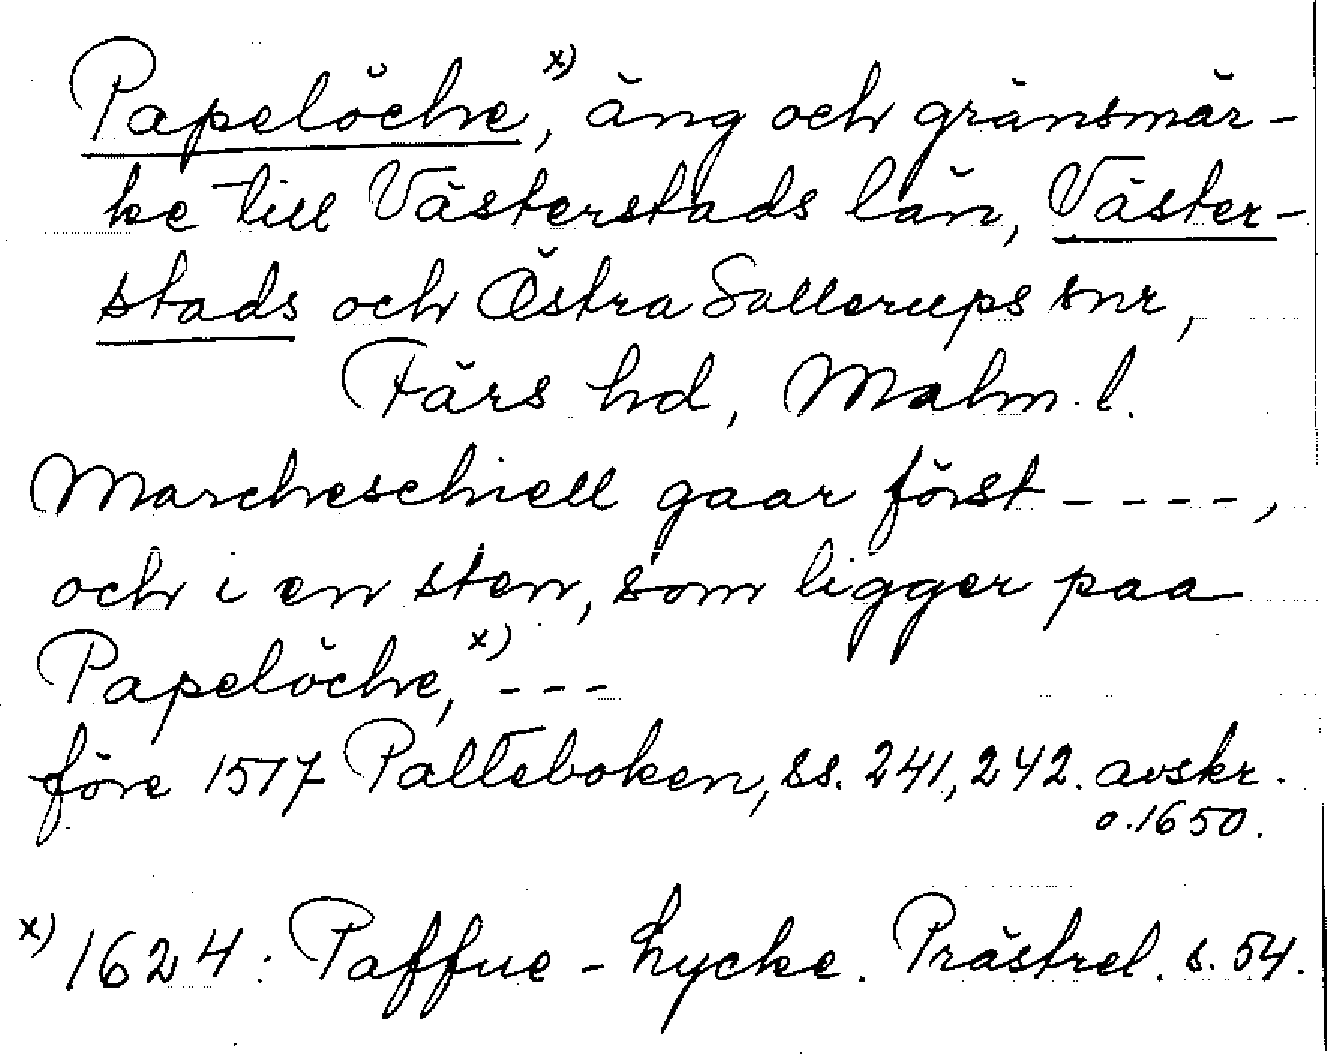 Papelöche,ˣ⁾ äng och gränsmär-
ke till Västerstads län, Väster-
stads och Östra Sallerups snr,
Färs hd, Malm. l.
Marcheschiell gaar först - - - -,
och i en sten, som ligger paa
Papelöche,ˣ⁾ - - -
före 1517 Palteboken, ss. 241, 242. avskr.
o. 1650.
x) 1624: Paffue-Lycke. Prästrel. s. 54.